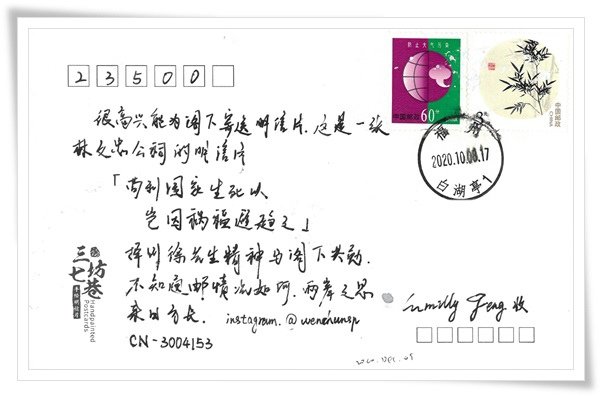 23500
防止大气污染
中国邮政
60分
CHINA
中国邮政
福州
2020.10.
.17
白湖亭1
很高兴能为阁下寄送明信片.这是一张
林文忠公祠的明信片
「苟利国家生死以
岂因祸福避趋之」
生精神与阁下共勉.
不知通邮情况如何.两岸之思
来日方长.
instagram.@wenchunsp
CN-3004153
三坊七巷
手绘明信片
Handpainted
Postcards
收